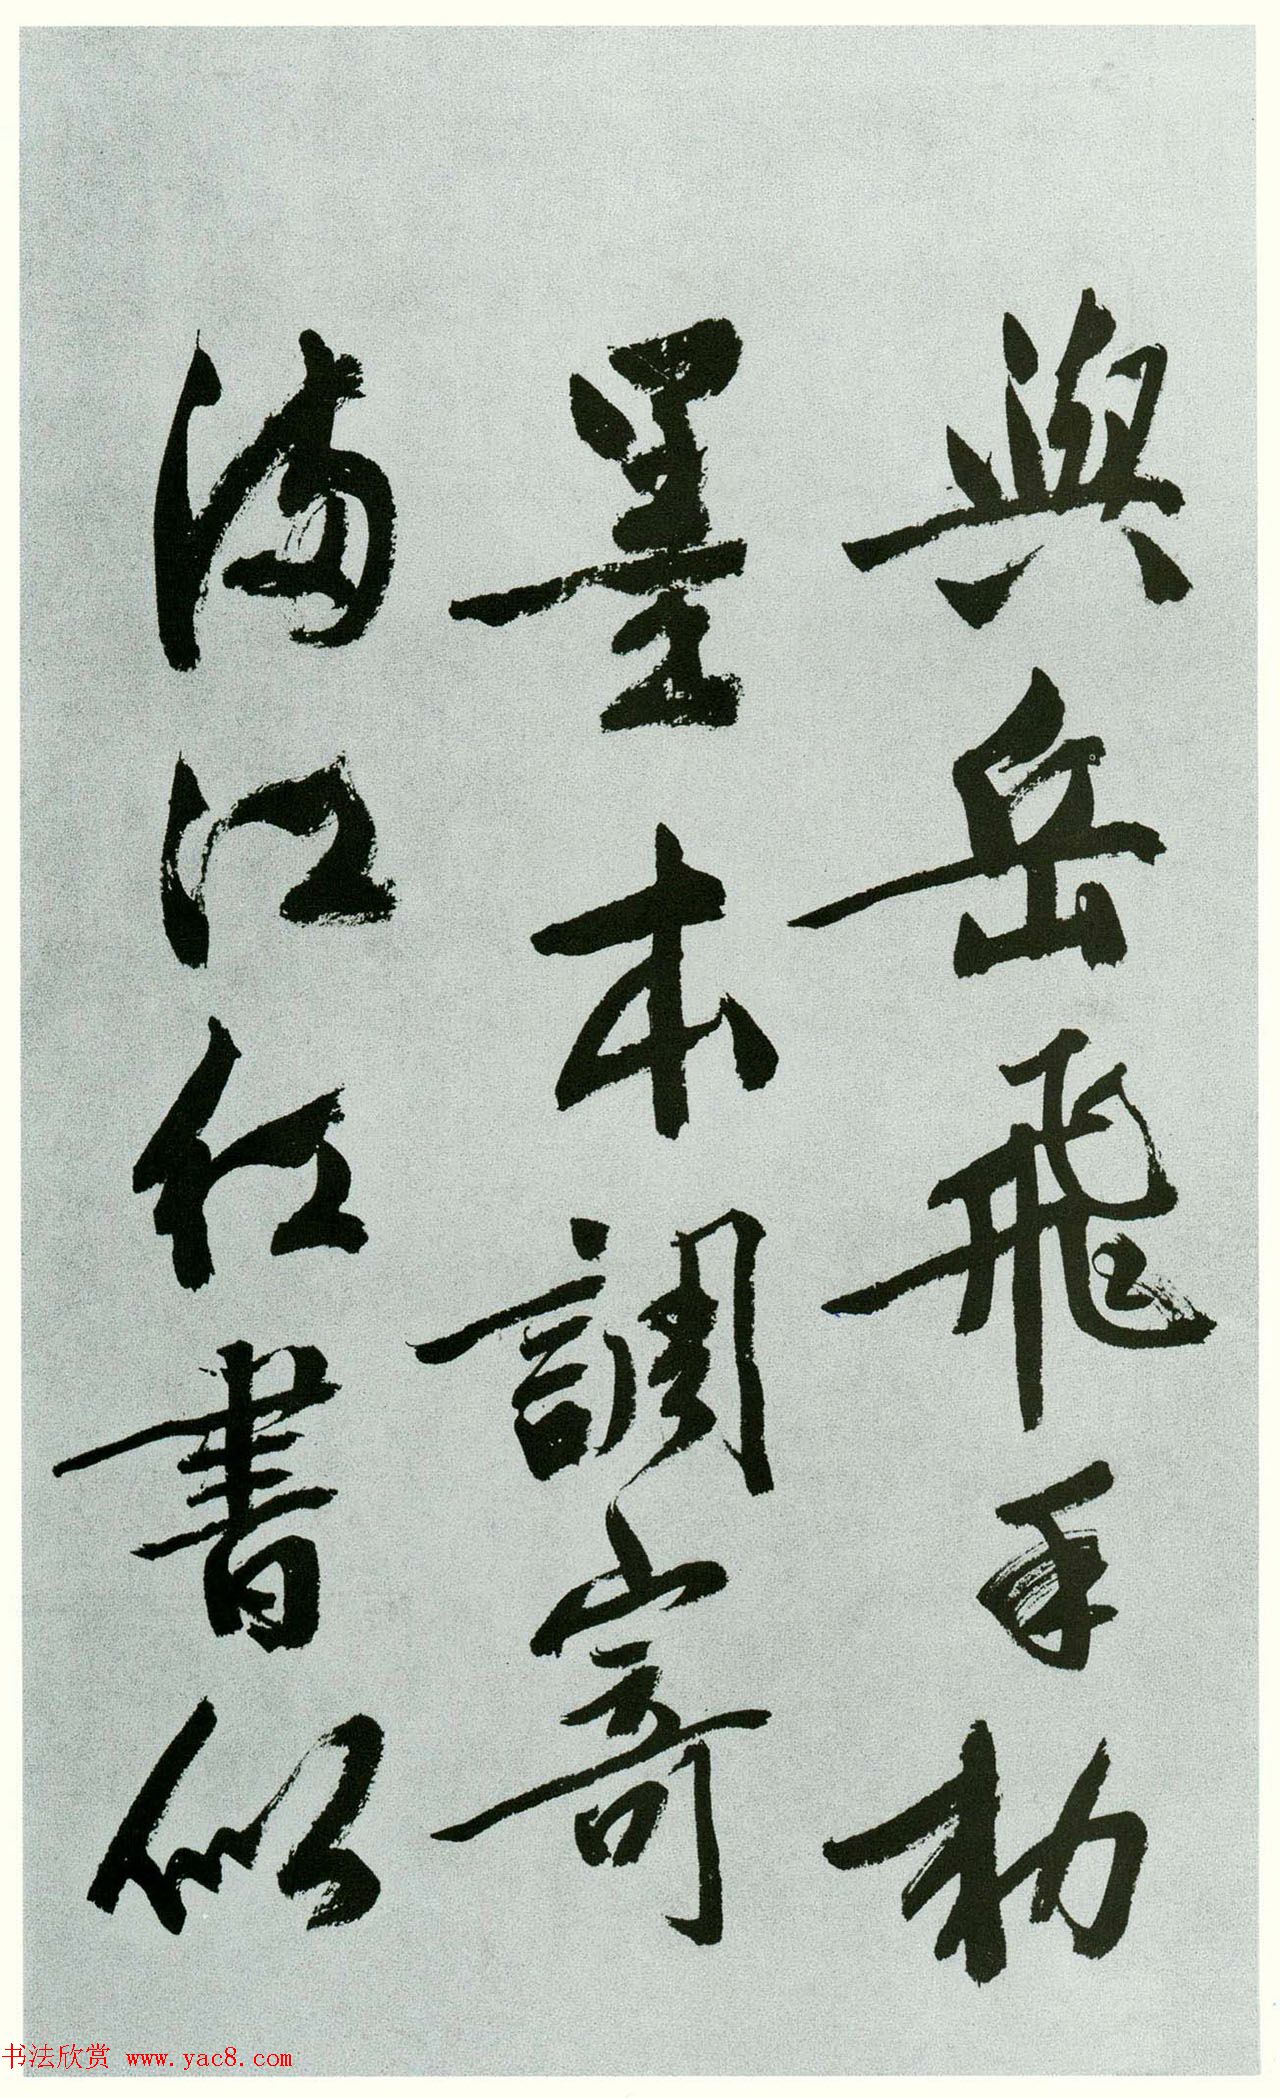 與岳飛手勑
墨本調寄
滿江紅書似
书法欣赏 www.yac8.com